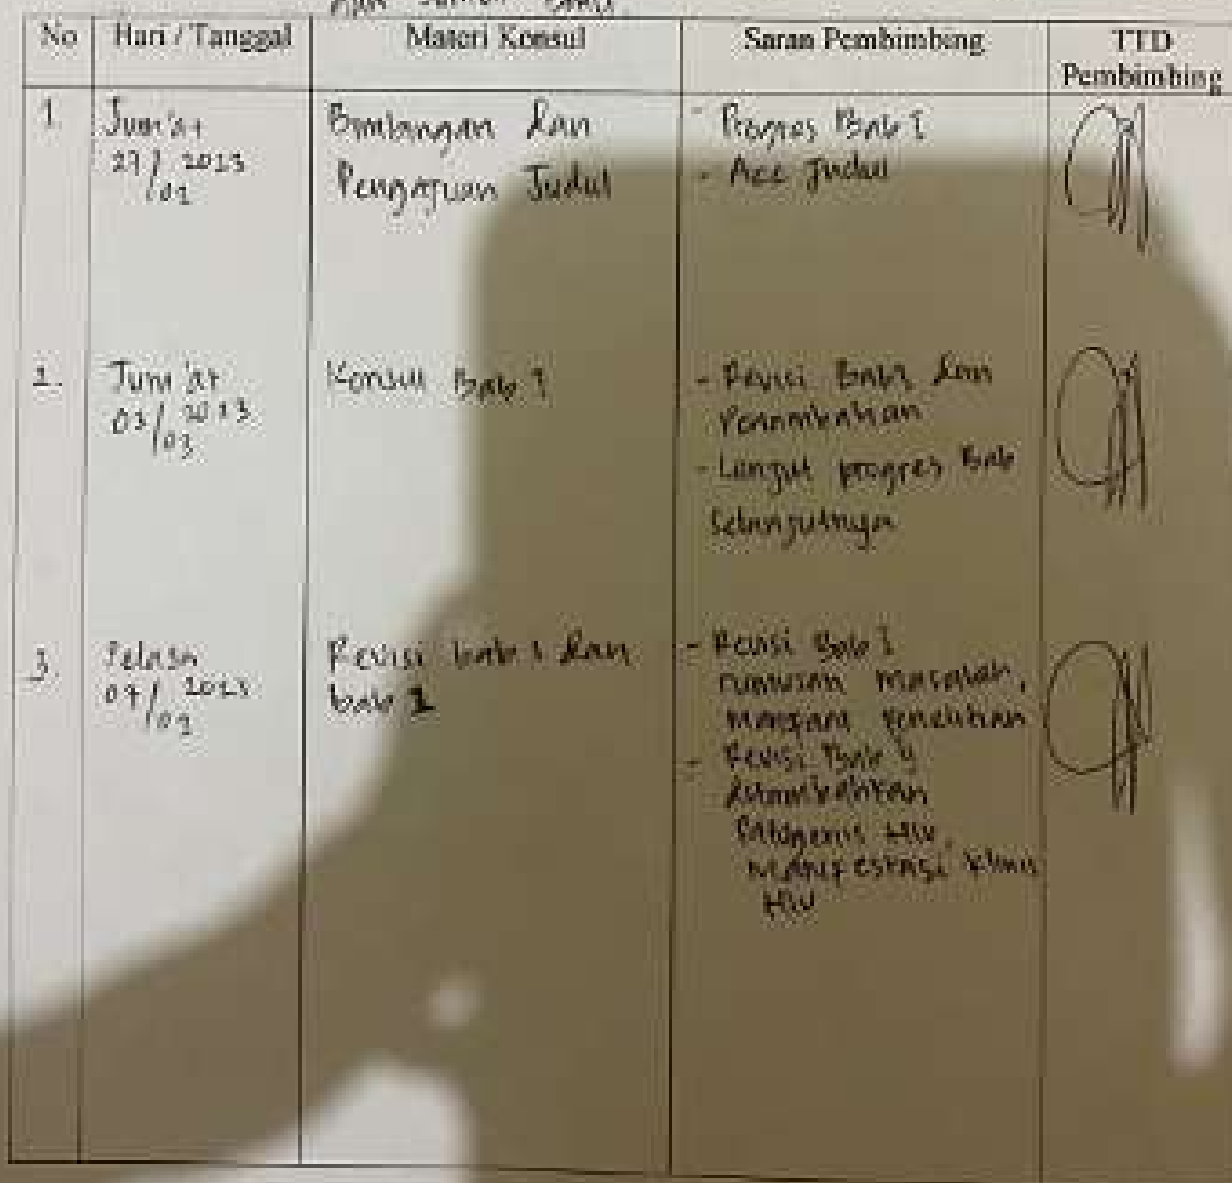 No
Hari / Tanggal
Materi Konsul
Saran Pembimbing
TTD
Pembimbing
1.
Jum'at
27/ 2023
/01
Bimbangan dan
Pengajuan Judul
- Progres Bab 1
- Acc Judul
2.
Jum'at
03/ 2023
/03
Konsul Bab 1
- Revisi Bab 1 dan
Penambahan
- Lanjut progres Bab
Selanjutnya
3.
Selasa
07/ 2023
Revisi bab 1 dan
bab 2
- Revisi Bab 1
rumusan masalah,
manfaat penelitian
- Revisi Bab
ditambahkan
Patogenis HIV,
manifestasi klinis
HIV